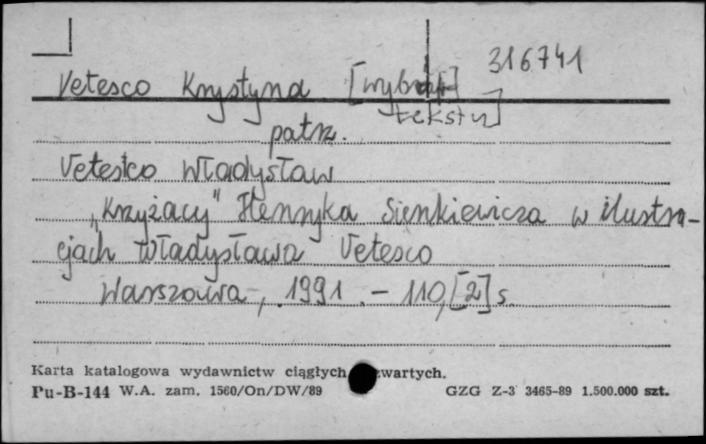 316741
Vetesco Krystyna [wybór
tekstu]
patrz.
Vetesco Władysław
„Krzyżacy" Henryka Sienkiewicza w ilustra-
cjach Władysława Vetesco
Warszawa, 1991. - 110, [2] s.
Karta katalogowa wydawnictw ciągłych zwartych.
Pu-B-144 W.A. zam. 1560/On/DW/89 GZG Z-3 3465-89 1.500.000 szt.